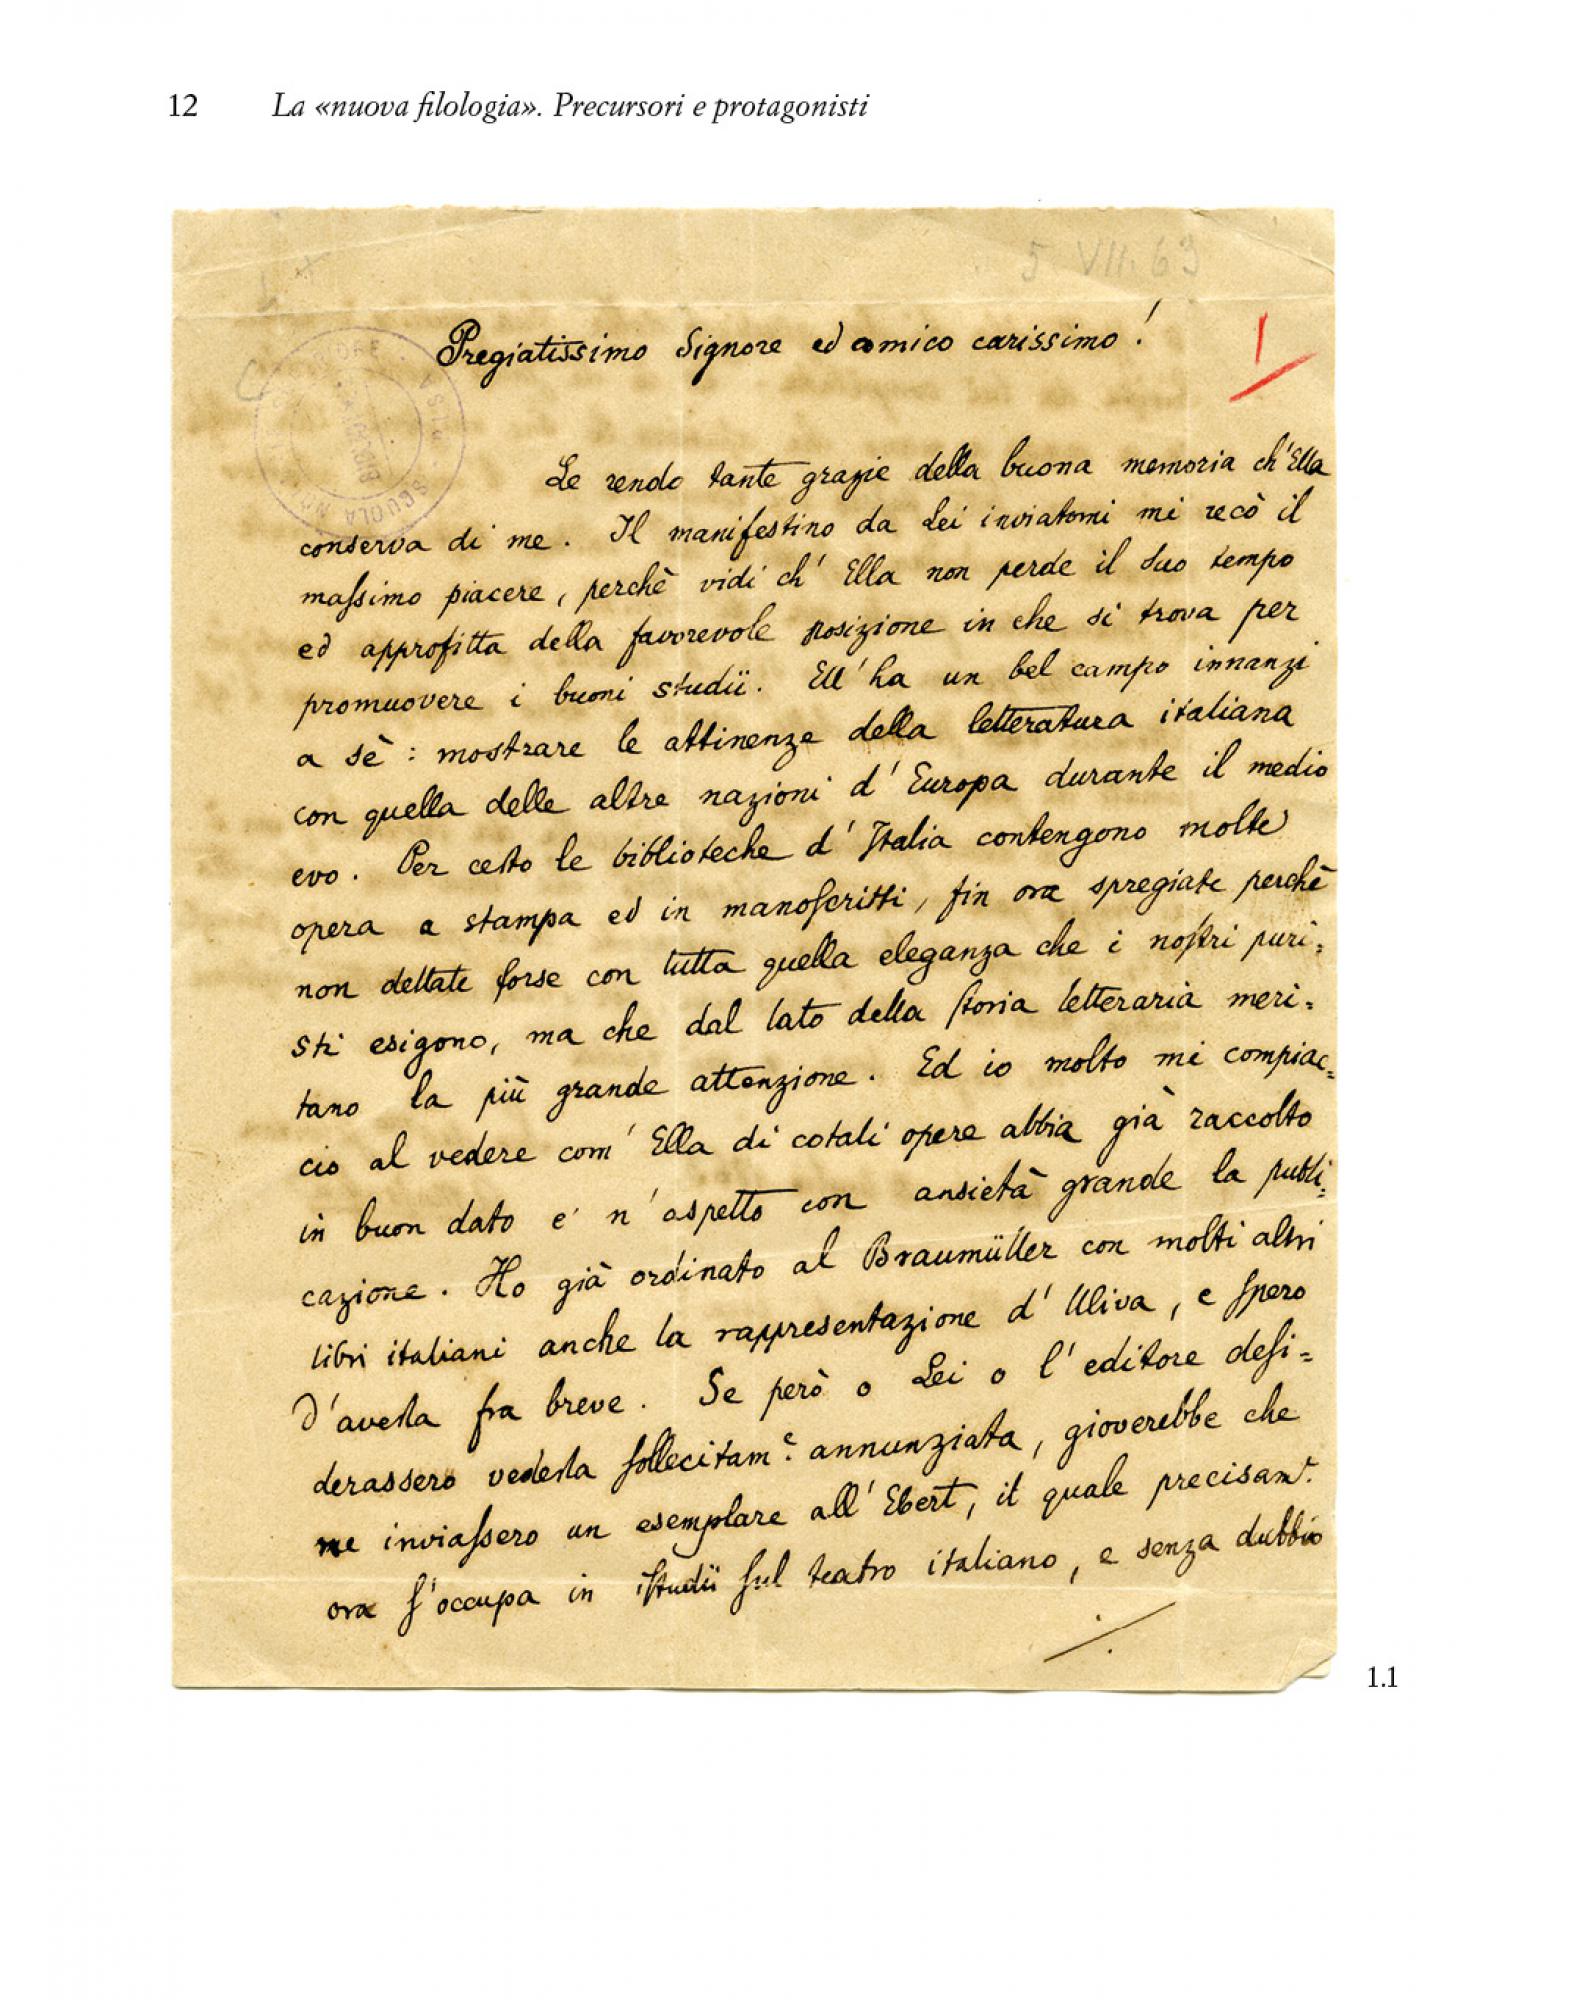 12 La «nuova filologia». Precursori e protagonisti
5 VII. 63
Pregiatissimo Signore ed amico carissimo!
Le rendo tante grazie della buona memoria ch'Ella
conserva di me. Il manifestino da Lei inviatomi mi recò il
massimo piacere, perchè vidi ch' Ella non perde il suo tempo
ed approfitta della favorevole posizione in che si trova per
promuovere i buoni studii. Ell' ha un bel campo innanzi
a sè: mostrare le attinenze della letteratura italiana
con quella delle altre nazioni d' Europa durante il medio
evo. Per certo le biblioteche d' Italia contengono molte
opera a stampa ed in manoscritti, fin ora spregiate perchè
non dettate forse con tutta quella eleganza che i nostri puri=
sti esigono, ma che dal lato della storia letteraria meri=
tano la più grande attenzione. Ed io molto mi compiac=
cio al vedere com' Ella di cotali opere abbia già raccolto
in buon dato e n' aspetto con ansietà grande la publi=
cazione. Ho già ordinato al Braumüller con molti altri
libri italiani anche la rappresentazione d' Uliva, e spero
d'averla fra breve. Se però o Lei o l' editore desi=
derassero vederla sollecitam.e annunziata, gioverebbe che
ne inviassero un esemplare all' Ebert, il quale precisam.e
ora s'occupa in istudii sul teatro italiano, e senza dubbio
./.
1.1